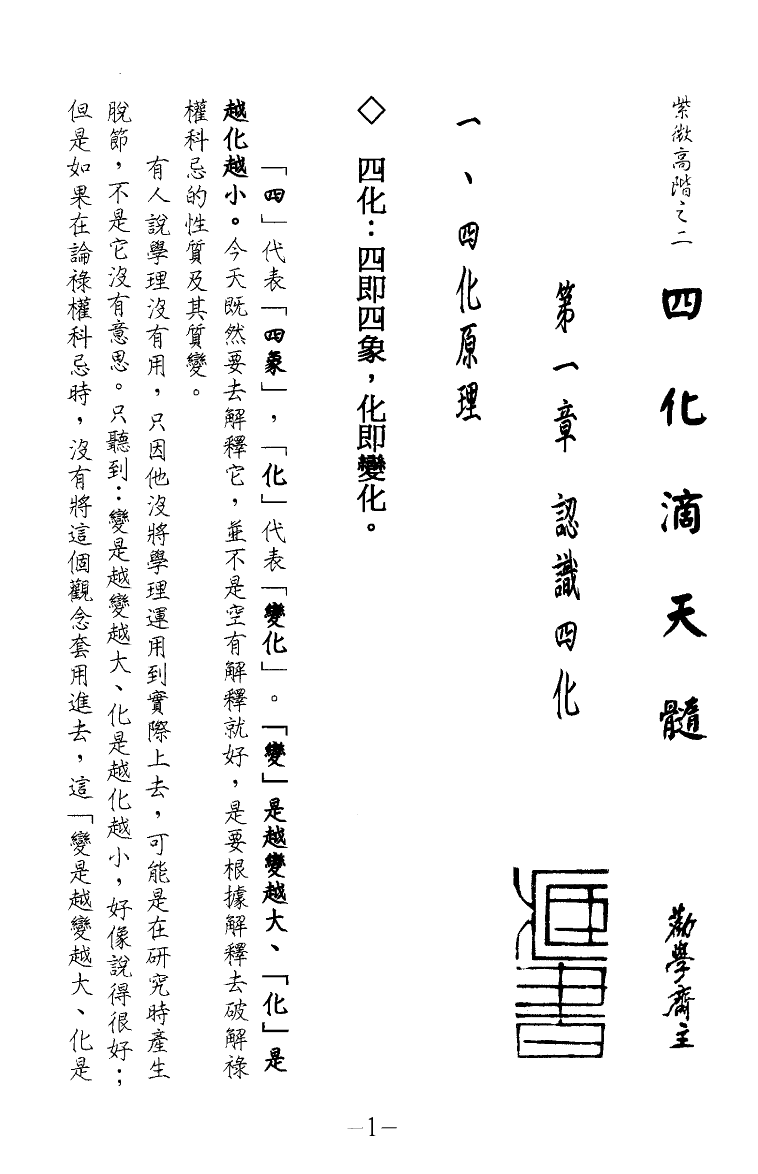 紫微高階之二
四化滴天髓
勸學齋主
第一章 認識四化
一、四化原理
◇ 四化：四即四象，化即變化。
「四」代表「四象」，「化」代表「變化」。「變」是越變越大、「化」是
越化越小。今天既然要去解釋它，並不是空有解釋就好，是要根據解釋去破解祿
權科忌的性質及其質變。
有人說學理沒有用，只因他沒將學理運用到實際上去，可能是在研究時產生
脫節，不是它沒有意思。只聽到：變是越變越大、化是越化越小，好像說得很好；
但是如果在論祿權科忌時，沒有將這個觀念套用進去，這「變是越變越大、化是
—1—